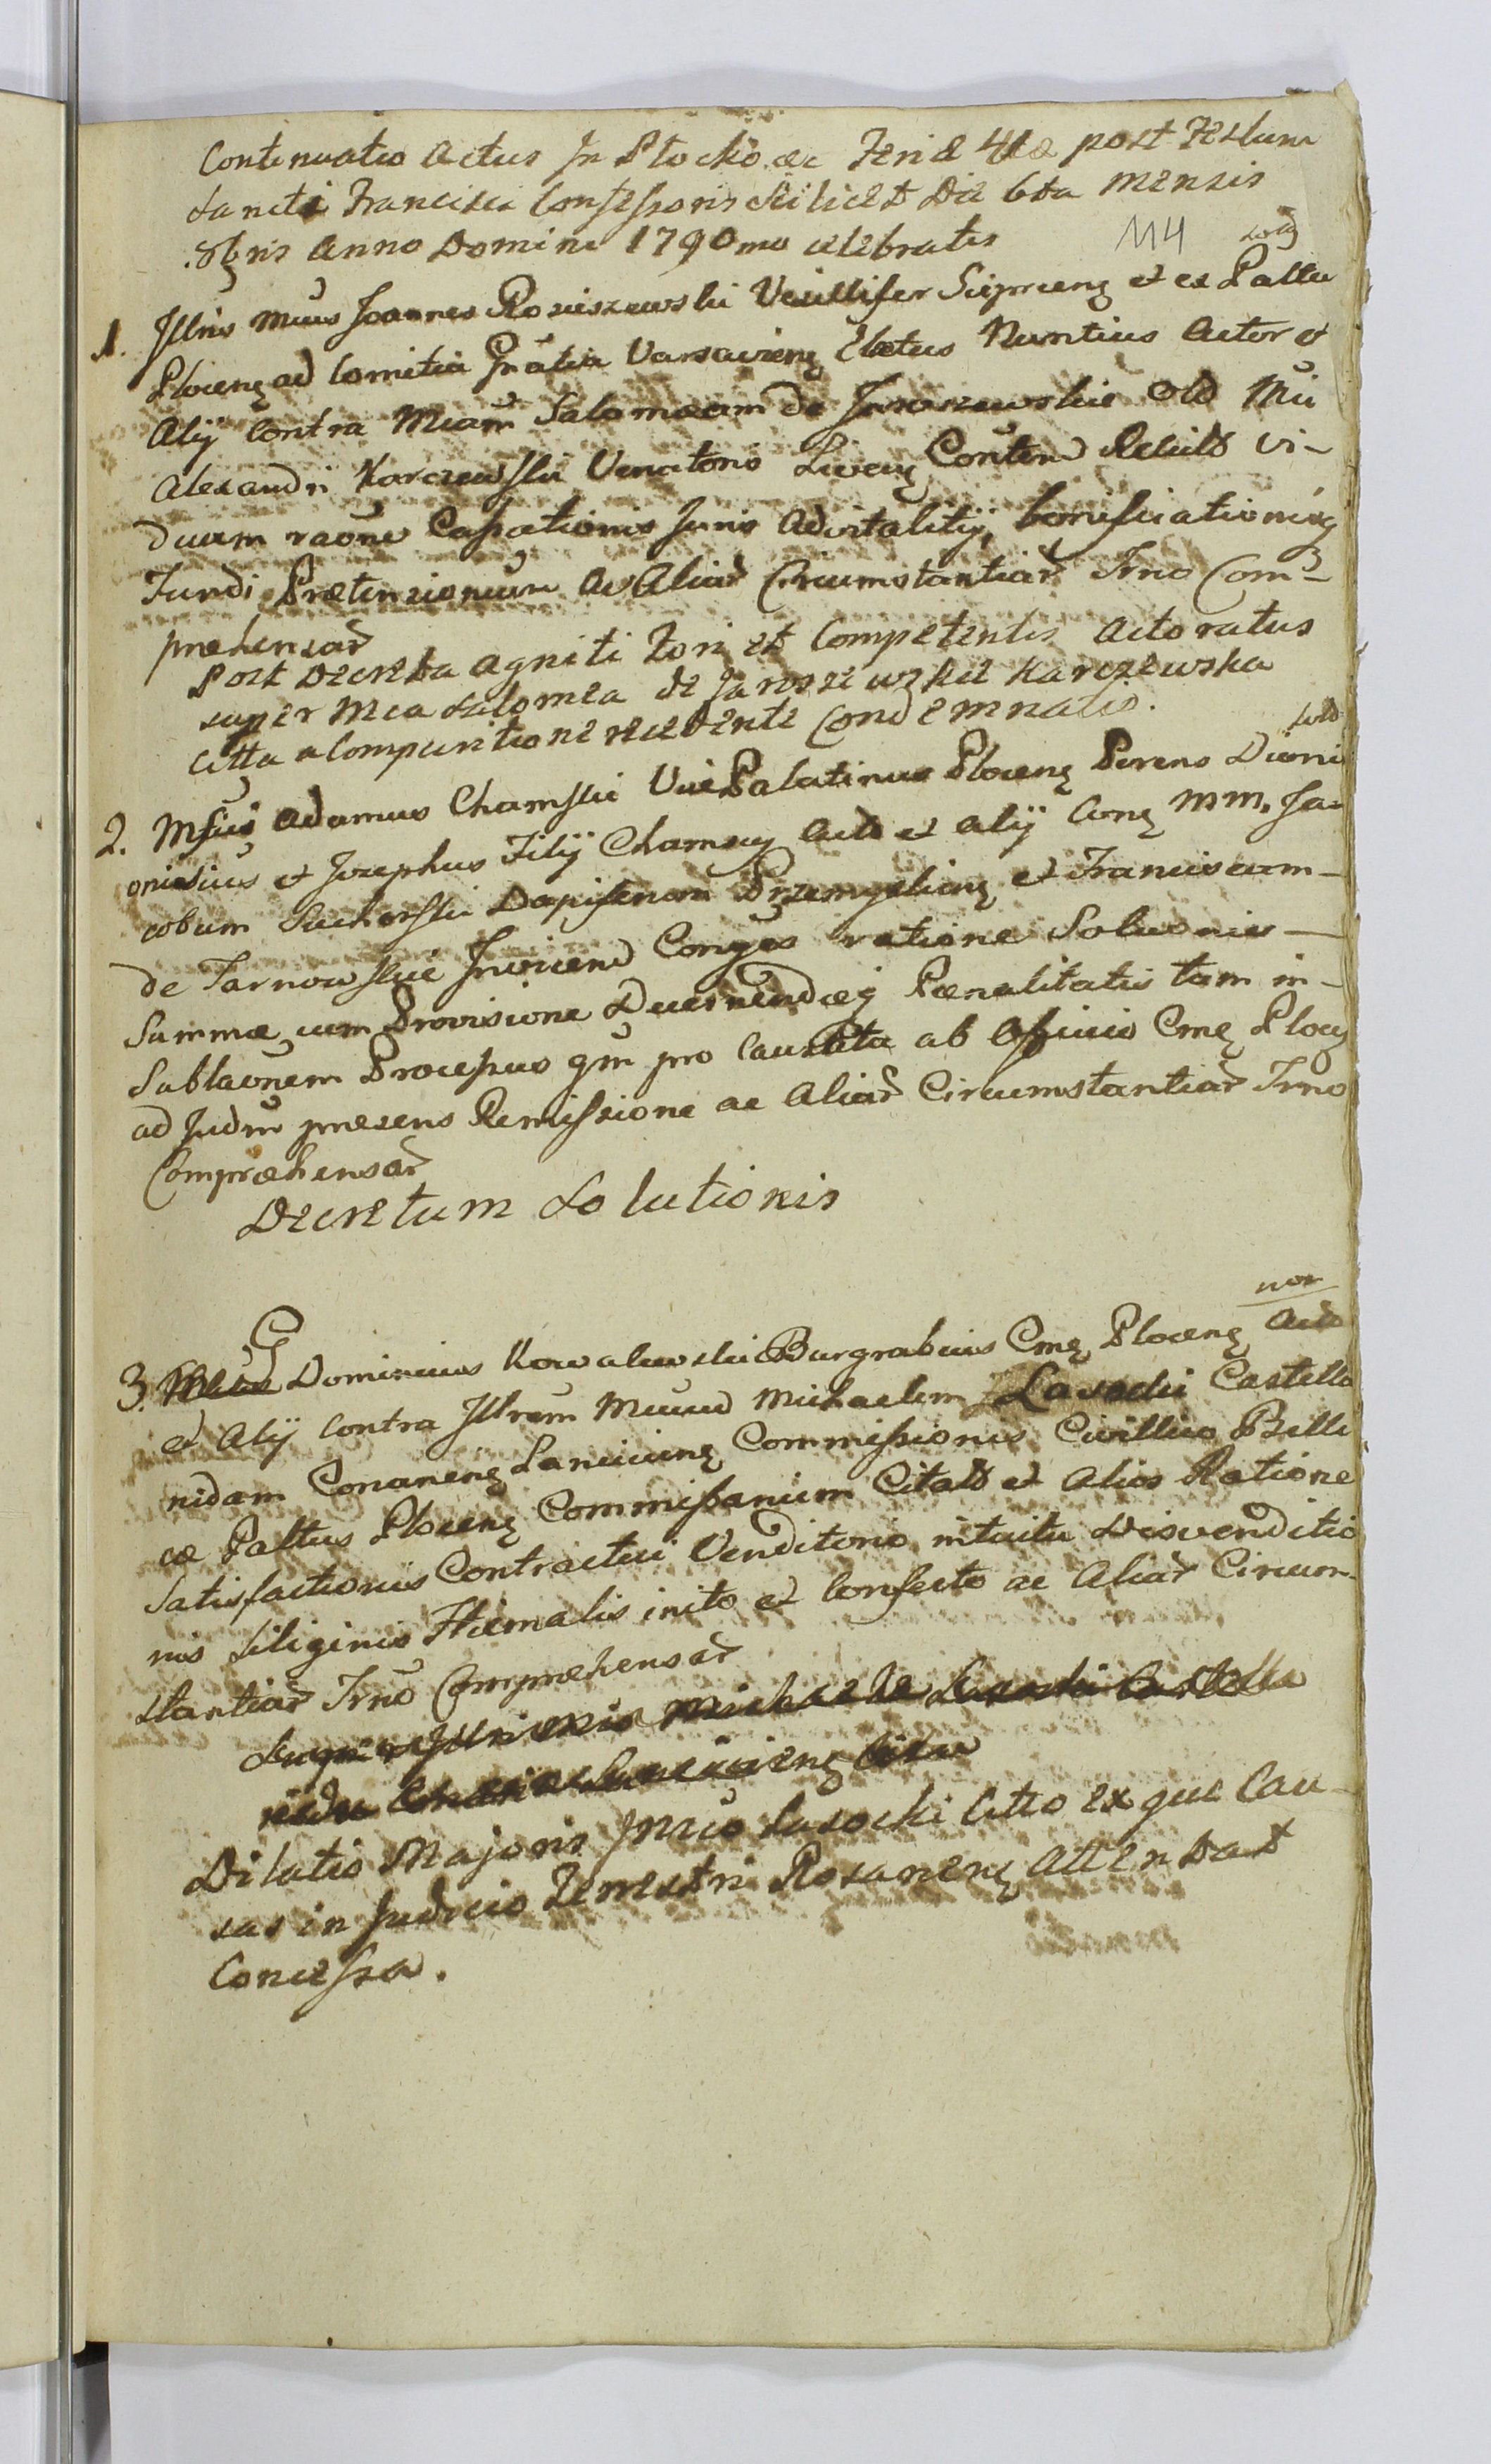 Continuatio Actus In Plocko ac Feria 4ta post Festum
Sancti Francisci Confessoris scilicet Die 6ta Mensis
8bris Anno Domini 1790mo celebratis 114
1. Illris Mcus Joannes Rosciszewski Vexillifer Sieprcens et ex Pallu
Plocens ad Comitia Gnalia Varsaviens Electus Nuntius Actor et
Alij Contra Mcam Salomeam de Jaroszewskie Old Mci
Alexandri Karczewski Venatoris Livens Conten Relict Vi-
duam raone Cassationis Juris Advitalitij, bonificationisq
Fundi Prætensionum Ac Aliar Circumstantiar Trno Com-
prehensar
Post Decreta Agniti Fori et Competentis Actoratus
super Mca Salomea de Jaroszewskie Karczewska
Citta a Comparitione recedente Condemnatis.
2. Msus Adamus Chamski Vice Palatinus Plocens Parens Dioni
onisius et Josephus Filij Chamscy Acto et Alij Cong MM. Ja-
cobum Sucharski Dapiferum Przemysliens et Franciscam
de Tarnowskie Invicem Conges ratione Soluonis
Summæ cum Provisione Decernendæq Pœnalitatis tam in
Sublaonem Processus qm pro Causata ab Officio Cme Plocens
ad Judm præsens Remissione ac Aliar Circumstantiar Trno
Compræhensar
Decretum Solutionis
nor
3. G Dominicus Kowalewski Burgrabius Cme Plocens Acto
et Alij Contra Illrem Mcum Michaelem Lasocki Castella
nidam Conarens Lanciciens Commissionis Civillico Belli
cæ Pallus Plocens Commissarium Citatt et Alios Ratione
Satisfactionis Contractui Venditorio intuitu Disvenditio
nis Siliginis Hiemalis inito et Confecto ac Aliar Circum-
stantiar Trno Compræhensar
Michaele Lasocki Castella
Dilatio Majoris Mco Lasocki Citto ex quo Cau-
sas in Judicio Terrestri Rosanens Attentat
Concessa.